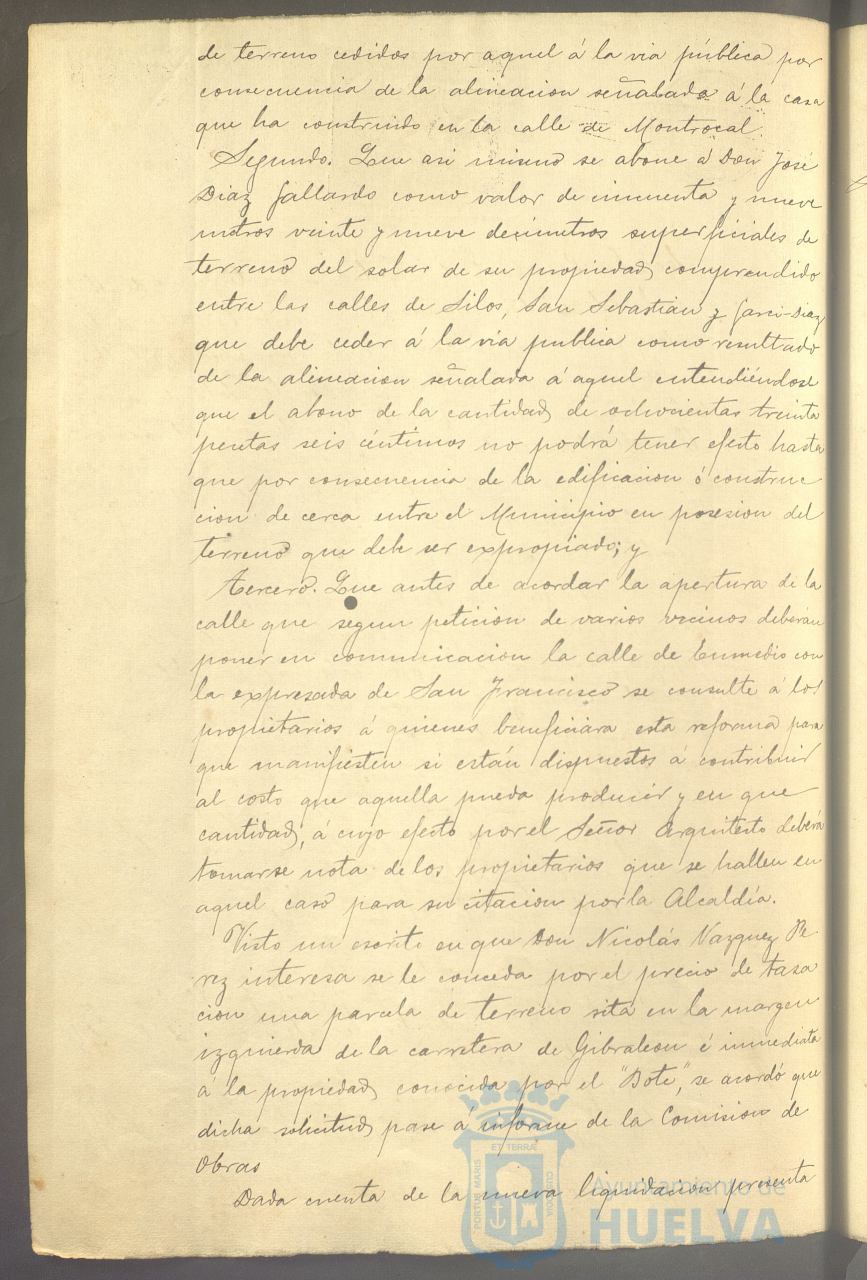 de terreno cedidos por aquel á la via pública por
consecuencia de la alineacion señalada á la casa
que ha construido en la calle de Montrocal.
Segundo. Que asi mismo se abone á Don José
Diaz Gallardo como valor de cincuenta y nueve
metros veinte y nueve decimetros superficiales de
terreno del solar de su propiedad comprendido
entre las calles de Silos, San Sebastian y Garci-Diaz
que debe ceder á la via publica como resultado
de la alineacion señalada á aquel entendiéndose
que el abono de la cantidad de ochocientas treinta
pesetas seis céntimos no podrá tener efecto hasta
que por consecuencia de la edificacion ó construc
cion de cerca entre el Municipio en posesion del
terreno que debe ser expropiado; y
Tercero. Que antes de acordar la apertura de la
calle que segun peticion de varios vecinos deberán
poner en comunicacion la calle de Enmedio con
la expresada de San Francisco se consulte á los
propietarios á quienes beneficiara esta reforma para
que manifiesten si están dispuestos á contribuir
al costo que aquella pueda producir y en que
cantidad, á cuyo efecto por el Señor Arquitecto deberá
tomarse nota de los propietarios que se hallen en
aquel caso para su citacion por la Alcaldía.
Visto un escrito en que Don Nicolás Vazquez Pe
rez interesa se le conceda por el precio de tasa
cion una parcela de terreno sita en la margen
izquierda de la carretera de Gibraleon é inmediata
á la propiedad conocida por el "Bote", se acordó que
dicha solicitud pase á informe de la Comision de
Obras
Dada cuenta de la nueva liquidacion presenta
PORTUS MARIS ET TERRÆ CUSTODIA
Ayuntamiento de
HUELVA